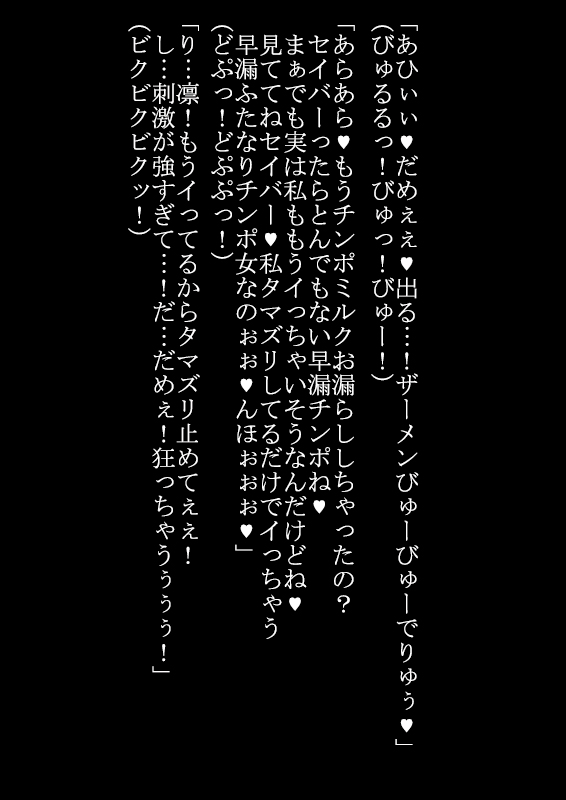 「あひぃぃ♥だめぇぇ♥出る…！ザーメンびゅーびゅーでりゅぅ♥」
(びゅるるっ！びゅっ！びゅー！)
「あらあら♥もうチンポミルクお漏らししちゃったの？
セイバーったらとんでもない早漏チンポね♥
まぁでも実は私ももうイっちゃいそうなんだけどね♥
見ててねセイバー♥私タマズリしてるだけでイっちゃう
早漏ふたなりチンポ女なのぉぉ♥んほぉぉぉ♥」
(どぷっ！どぷぷっ！)
「り…凛！もうイってるからタマズリ止めてぇぇ！
し…刺激が強すぎて…！だ…だめぇ！狂っちゃうぅぅぅ！」
(ビクビクビクッ！)